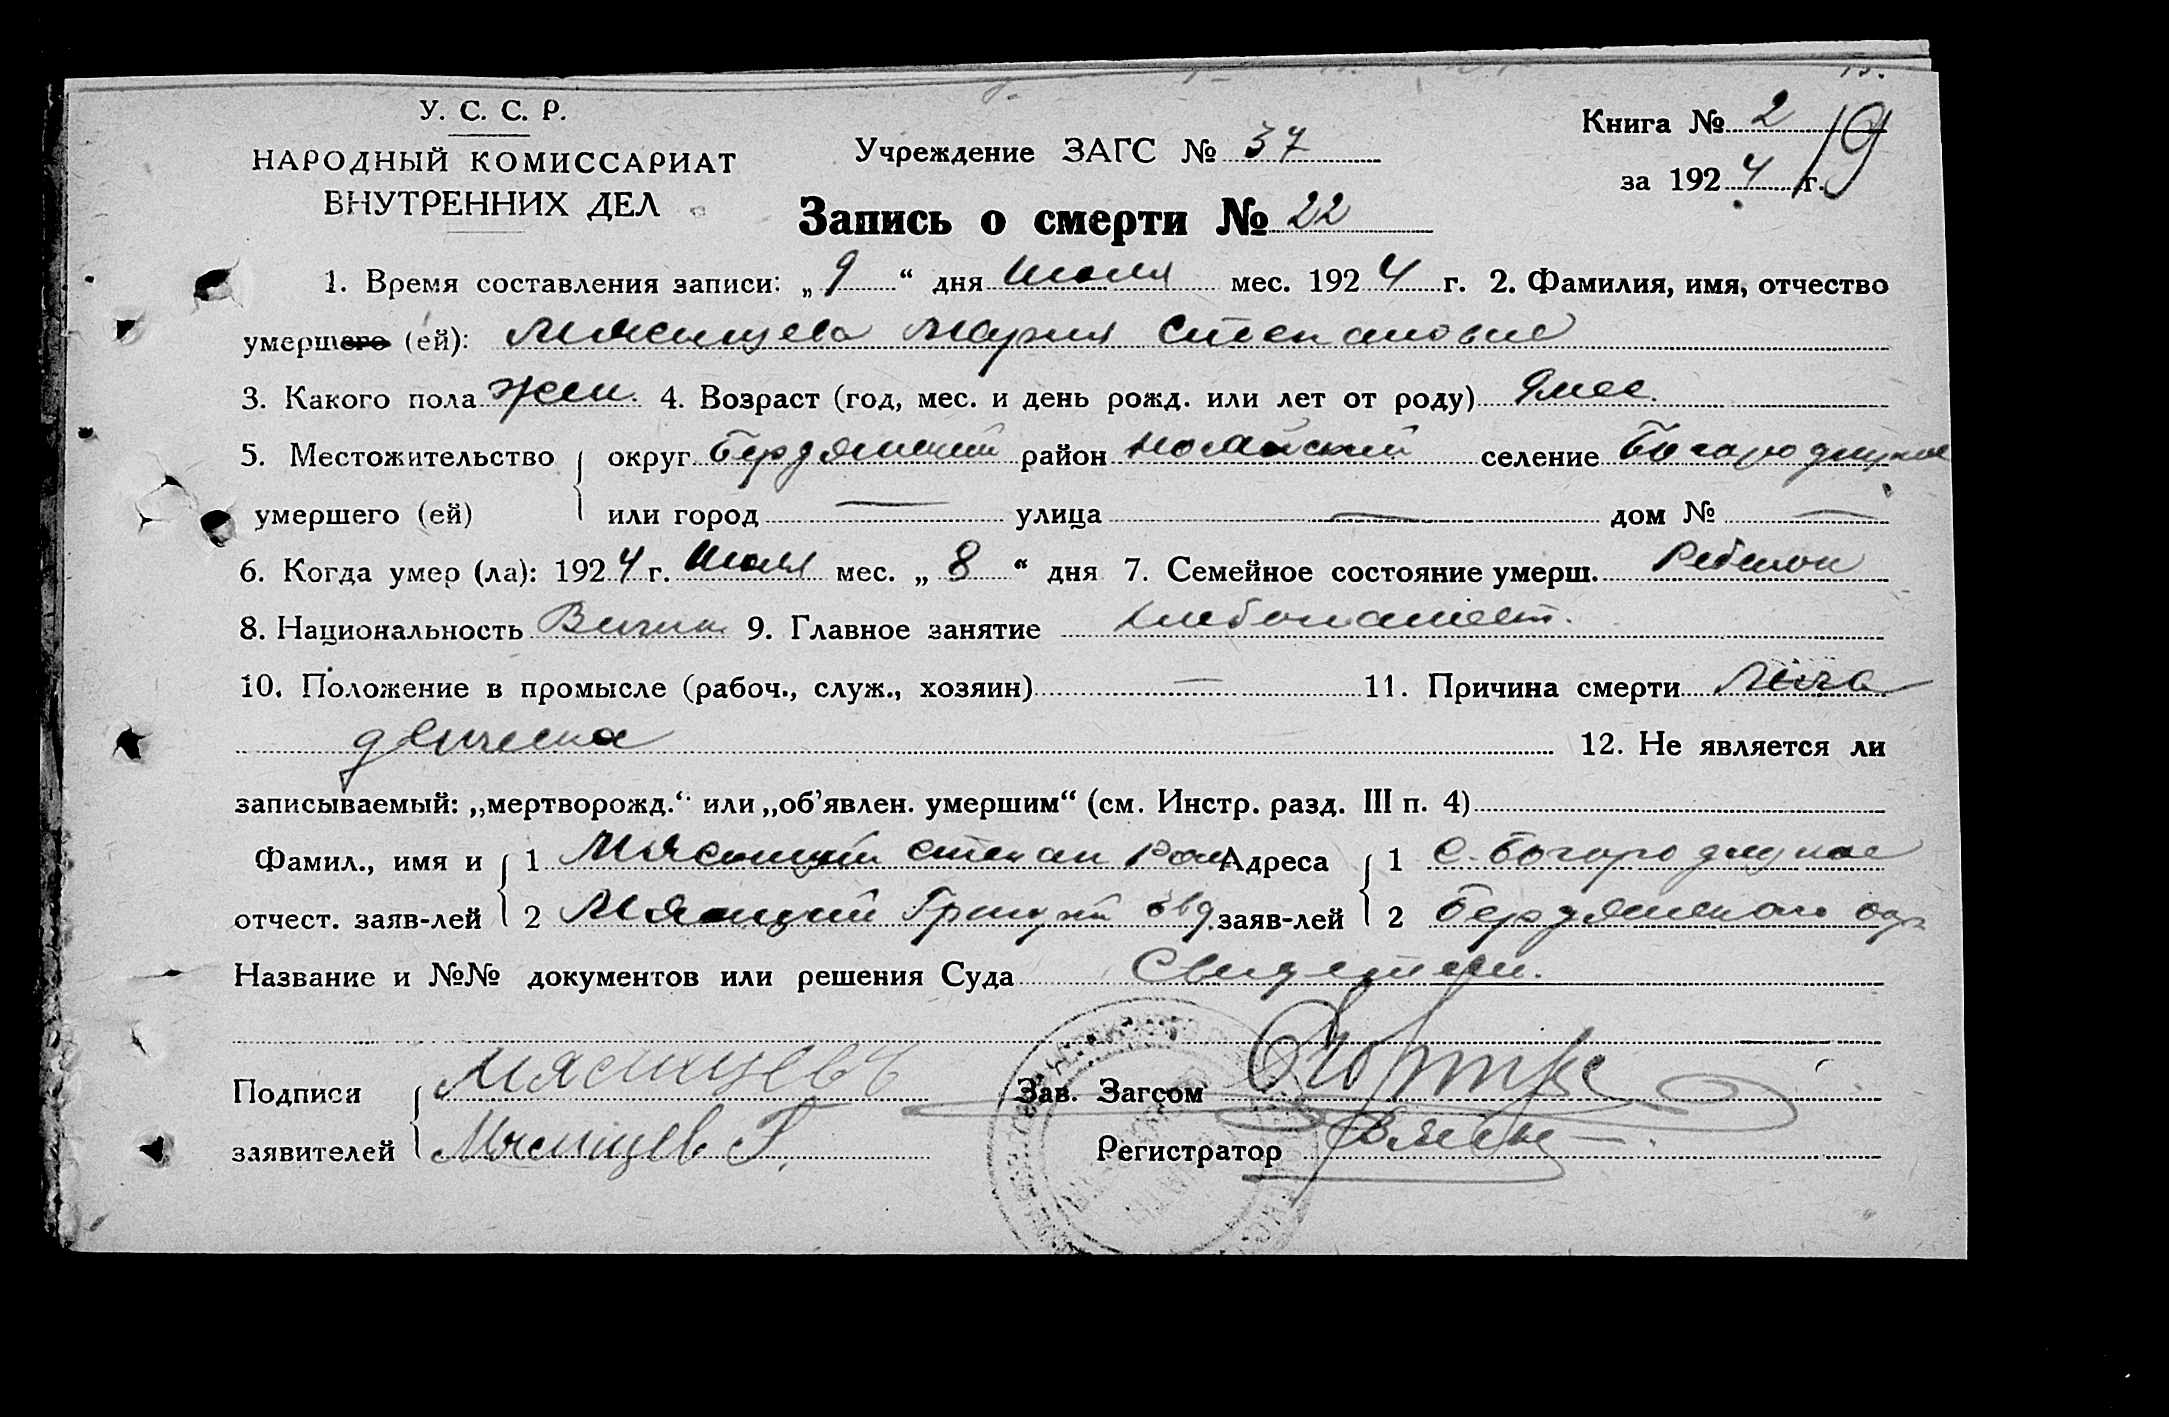 У. С. С. Р.
НАРОДНЫЙ КОМИССАРИАТ
ВНУТРЕННИХ ДЕЛ
Учреждение ЗАГС № 37
Книга № 2
за 1924 г.
19
Запись о смерти № 22
1. Время составления записи: „9“ дня Июля мес. 1924 г. 2. Фамилия, имя, отчество
умершего (ей): Мясищева Мария Степановне
3. Какого пола жен. 4. Возраст (год, мес. и день рожд. или лет от роду) 9 мес.
5. Местожительство округ Бердянский район Ногайский селение Богародицкое
умершего (ей) или город — улица — дом № —
6. Когда умер (ла): 1924 г. Июля мес. „8“ дня 7. Семейное состояние умерш. Ребенок
8. Национальность 9. Главное занятие хлебопашест.
10. Положение в промысле (рабоч., служ., хозяин) — 11. Причина смерти
12. Не является ли
записываемый: „мертворожд.“ или „об’явлен. умершим“ (см. Инстр. разд. III п. 4)
Фамил., имя и 1 Степан Адреса 1 с. Богародицкое
отчест. заяв-лей 2 заяв-лей 2 Бердянского окр
Название и №№ документов или решения Суда Свидетели.
Подписи Мясищевъ Зав. Загсом
заявителей Мясищев Г. Регистратор